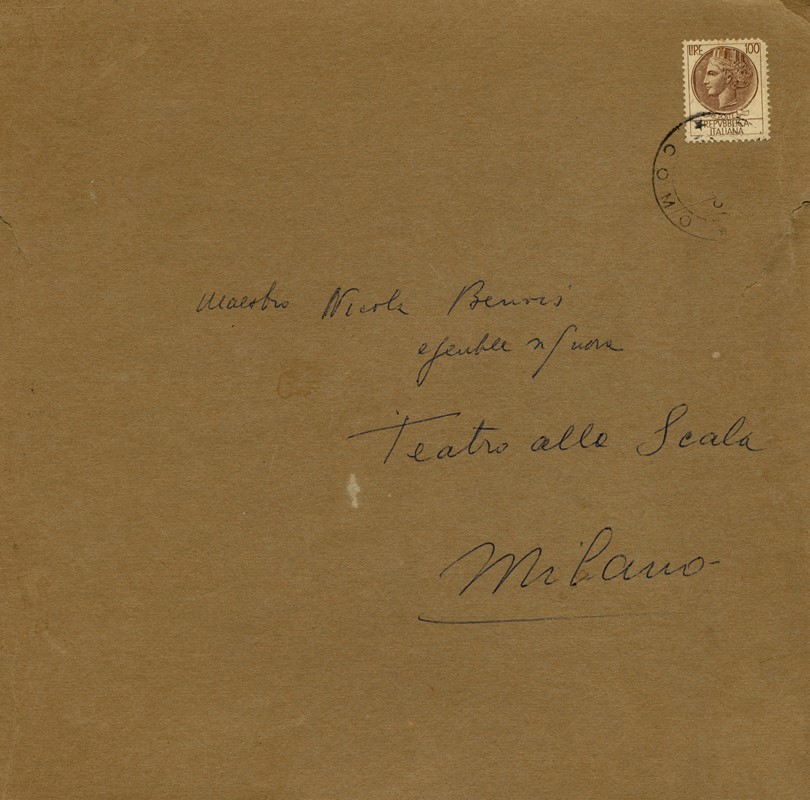 LIRE 100
REPVBBLICA
ITALIANA
COMO
Maestro Nicola Benois
e gentile signora
Teatro alla Scala
Milano